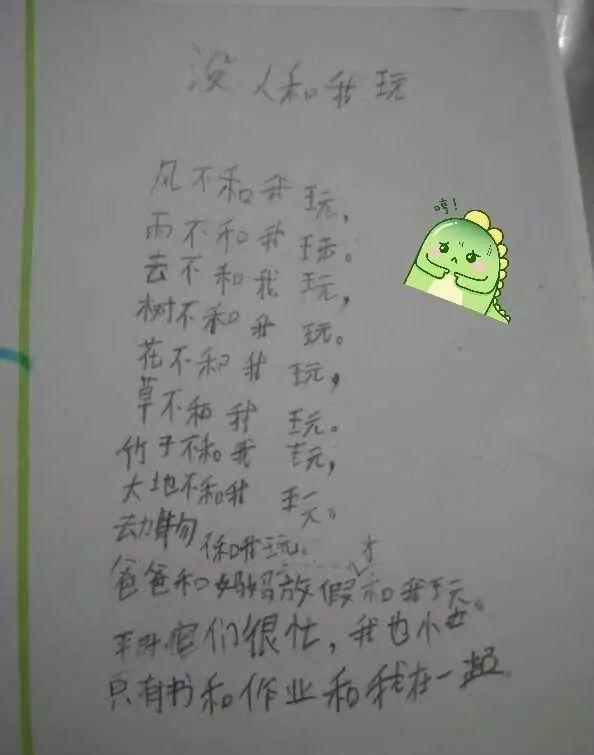 没人和我玩
风不和我玩，
雨不和我玩。
去不和我玩，
树不和我玩。
花不和我玩，
草不和我玩。
竹子不和我玩，
大地不和我玩。
动物不和我玩。
爸爸和妈妈放假才和我玩。
平时它们很忙，我也
只有书和作业和我在一起
哼！